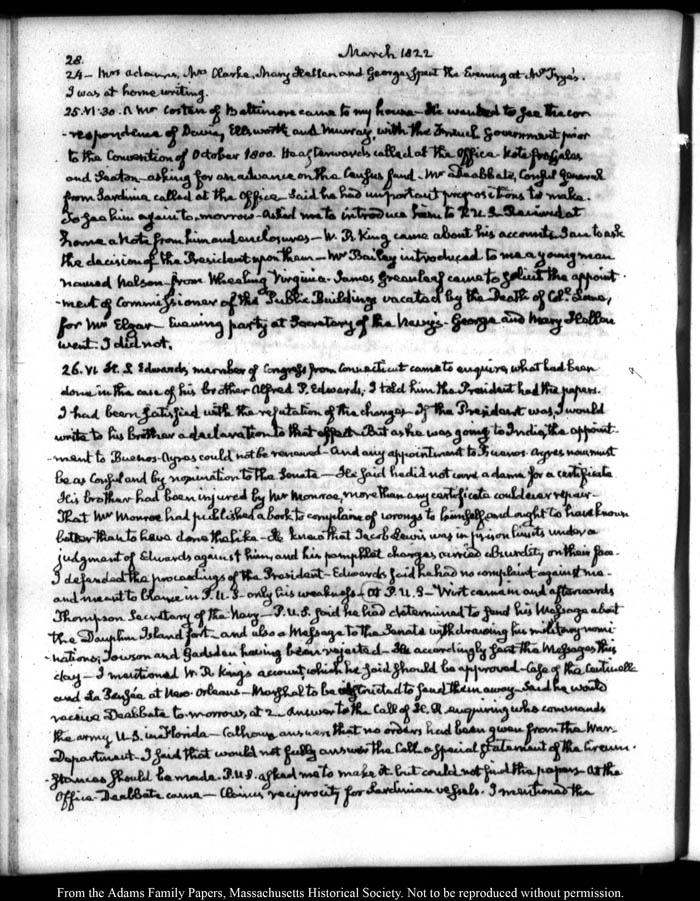 28.
March 1822
24 – Mrs Adams, Mrs Clarke, Mary Hellen and George, spent the Evening at Mr Frye's.
I was at home writing.
25. VI. 30. A Mr Costen of Baltimore came to my house – He wanted to see the cor
-respondence of Davie, Ellsworth and Murray, with the French Government prior
to the Convention of October 1800. He afterwards called at the Office. Note from Gales
and Seaton – asking for an advance on the Census fund – Mr Deabbate, Consul General
from Sardinia called at the Office – Said he had important propositions to make.
To see him again to-morrow – Asked me to introduce him to P. U. S. Received at
home a Note from him and enclosures – W. R King came about his accounts. I am to ask
the decision of the President upon them – Mr Bailey introduced to me a young man
named Nelson – from Wheeling Virginia. James Greenleaf came to solicit the appoint
-ment of Commissioner of the Public Buildings vacated by the Death of Coll. Lane,
for Mr Elgar – Evening party at Secretary of the Navy's – George and Mary Hellen
went. I did not.
26. VI. H. S Edwards, member of Congress from Connecticut came to enquire, what had been
done in the case of his brother Alfred P. Edwards. I told him the President had the papers.
I had been satisfied with the refutation of the charges – If the President was, I would
write to his brother a declaration to that effect – But as he was going to India, the appoint
-ment to Buenos-Ayres could not be renewed – And any appointment to Buenos-Ayres now must
be as Consul and by nomination to the Senate – He said he did not care a damn for a certificate
His brother had been injured by Mr Monroe, more than any certificate could ever repair –
That Mr Monroe had published a book to complain of wrongs to himself, and ought to have known
better than to have done the like – He knew that Jacob Lewis was in prison limits under a
judgment of Edwards against him, and his pamphlet charges carried absurdity on their face.
I defended the proceedings of the President – Edwards said he had no complaint against me –
and meant to blame in P. U. S – only his weakness – At P. U. S – Wirt came in and afterwards
Thompson Secretary of the Navy – P. U. S. said he had determined to send his Message about
the Dauphin Island fort – and also a Message to the Senate withdrawing his military nomi
-nations; Towson and Gadsden having been rejected – He accordingly sent the Messages this
day – I mentioned W. R King's account, which he said should be approved – Case of the Centinelle
and La Pensée at New Orleans – Marshal to be instructed to send them away – Said he would
receive Deabbate to-morrow, at 2 – Answer to the Call of H. R enquiring who commands
the army U. S. in Florida – Calhoun's answer that no orders had been given from the War
Department – I said that would not fully answer the Call. a special statement of the Circum
-stances should be made. P. U. S. asked me to make it but could not find the papers – At the
Office – Deabbate came – Claims reciprocity for Sardinian vessels. I mentioned the
From the Adams Family Papers, Massachusetts Historical Society. Not to be reproduced without permission.